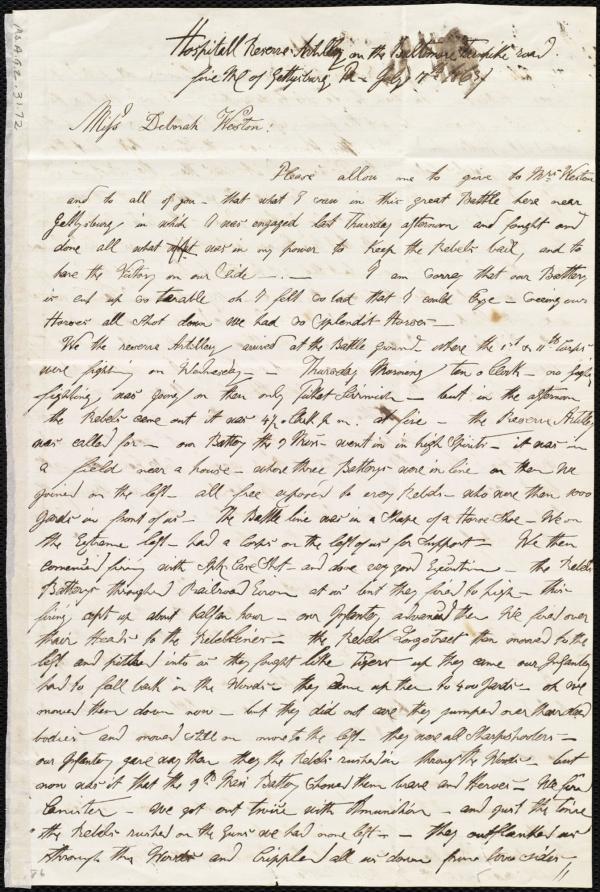 MS.A.9.2.31.72
Hospitall Reserve Artillery on the Baltimore Turnpike road.
five Ml of Gettysburg Pa - July 7th 1863
Miss Deborah Weston:
Please allow me to give to Mrs Weston
and to all of you - that what I in this great Battle here near
Gettysburg in which I was engaged last Thursday afternoon and fought and
done all what was in my power to keep the Rebels back, and to
have the Victory on our Side - . - I am sorray that our Battery
is cut up so tarable oh I felt so bad that I could Crye - seeing our
Horses all shot down we had so splendit Horses -
We the reserve Artillery arived at the Battle ground where the 1st & 11th Corps
were fighting on Wednesday - - Thursday Morning ten o Clock - no
fighting was going on then only Picket Skirmish - but in the afternoon
the Rebels came out it was 4½ o Clock p.m. at five - the Reserve Artillery
was called for - our Battery the 9 Mass - went in in high Spirits - it was in
a field near a house - where three Batterys were in line on then We
joined on the left - all free exposed to every Rebels - who were than 1000
Yards in front of us - The Battle line was in a Shape of a Horse Shoe - We on
the Extreme left - had a Corps on the left of us for Support - We then
comenced firing with Shot - and done very good Execution - the Rebels
Batterys through Railroad Iron at us but they fired to high - this
firing cept up about half an hour - our Infantry advanced then We fired over
thair Heads to the - the Rebels Longstreet then moved to the
left and pitched into us they fought like Tigers up they came our Infantry
had to fall back in the Woods - they came up then to 400 Yards - oh we
mowed them down now - but they did not care they jumped over thair dead
bodies and moved still on more to the left - they were all Sharpshooters -
our Infantry gave way then they the Rebels rushed in through the Woods - but
now was it that the 9th Mass Battery showed them brave and Heroes - We fire
Canister - We got out twice with Amunition - and just the time
the Rebels rushed on the Guns we had none left - - they outflanked us
through the Woods and Crippled all us down from two sides,